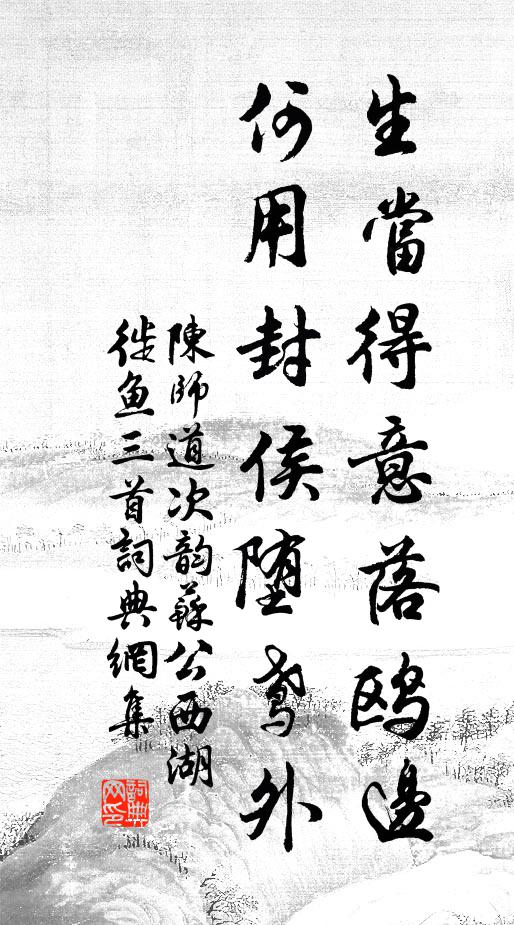 生當得意落鷗邊
何用封侯墮鳶外
陳師道次韵蘇公西湖
徙魚三首詞典網集
詞典网印